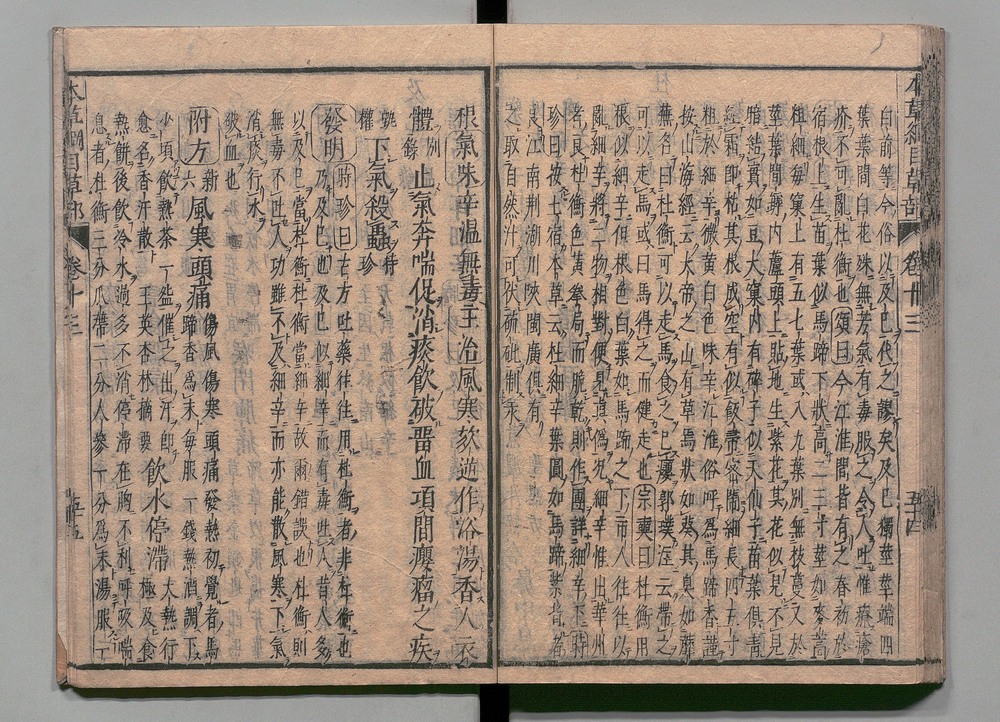 本草綱目草部 卷十三 五十四
白前等今俗以及已代之謬矣及已獨莖莖端四
葉葉間白花殊無芳氣有毒服之令人吐惟療瘡
疥不可亂杜衡也頌曰今江淮間皆有之春初於
宿根上生苗葉似馬蹄下狀高二三寸莖如麥藁
粗細每窠上有五七葉或八九葉別無枝蔓又於
莖葉間罅內蘆頭上貼地生紫花其花似見不見
暗結實如豆大窠內有碎子似天仙子苗葉俱青
經霜即枯其根成空有似飯帚密鬧細長四五寸
粗於細辛微黃白色味辛江淮俗呼為馬蹄香謹
按山海經云天帝之山有草焉狀如葵其臭如蘼
蕪名曰杜衡可以走馬食之已癭郭璞注云帶之
可以走馬或曰馬得之而健走也宗奭曰杜衡用
根似細辛但根色白葉如馬蹄之下市人往往以
亂細辛將二物相對便見真偽況細辛惟出華州
者良杜衡色黃拳局而脆乾則作團詳細辛下時
珍曰按土宿本草云杜細辛葉圓如馬蹄紫背者
良江南荆湖川陝閩廣俱有
之取自然汁可伏硫砒制汞
根氣味辛溫無毒主治風寒欬逆作浴湯香人衣
體別錄止氣奔喘促消痰飲破留血項間癭瘤之疾
甄權下氣殺蟲時珍
發明時珍曰古方吐藥往往用杜衡者非杜衡也
乃及已也及已似細辛而有毒吐人昔人多
以及已當杜衡杜衡當細辛故爾錯誤也杜衡則
無毒不吐人功雖不及細辛而亦能散風寒下氣
消痰行水
破血也
附方新六風寒頭痛傷風傷寒頭痛發熱初覺者馬
蹄香為末每服一錢熱酒調下
少頃飲熱茶一盌催之出汗即
愈名香汗散王英杏林摘要飲水停滯大熱行
極及食
熱餅後飲冷水過多不消停滯在胸不利呼吸喘
息者杜衡三分瓜蒂二分人參一分為末湯服一
本草綱目草部 卷十三 五十五